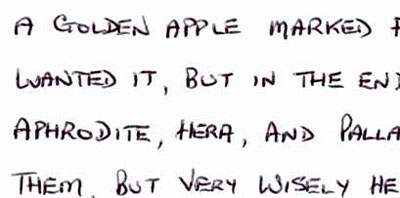 A GOLDEN APPLE MARKED
WANTED IT, BUT IN THE END
APHRODITE, HERA, AND PALLA
THEM. BUT VERY WISELY HE